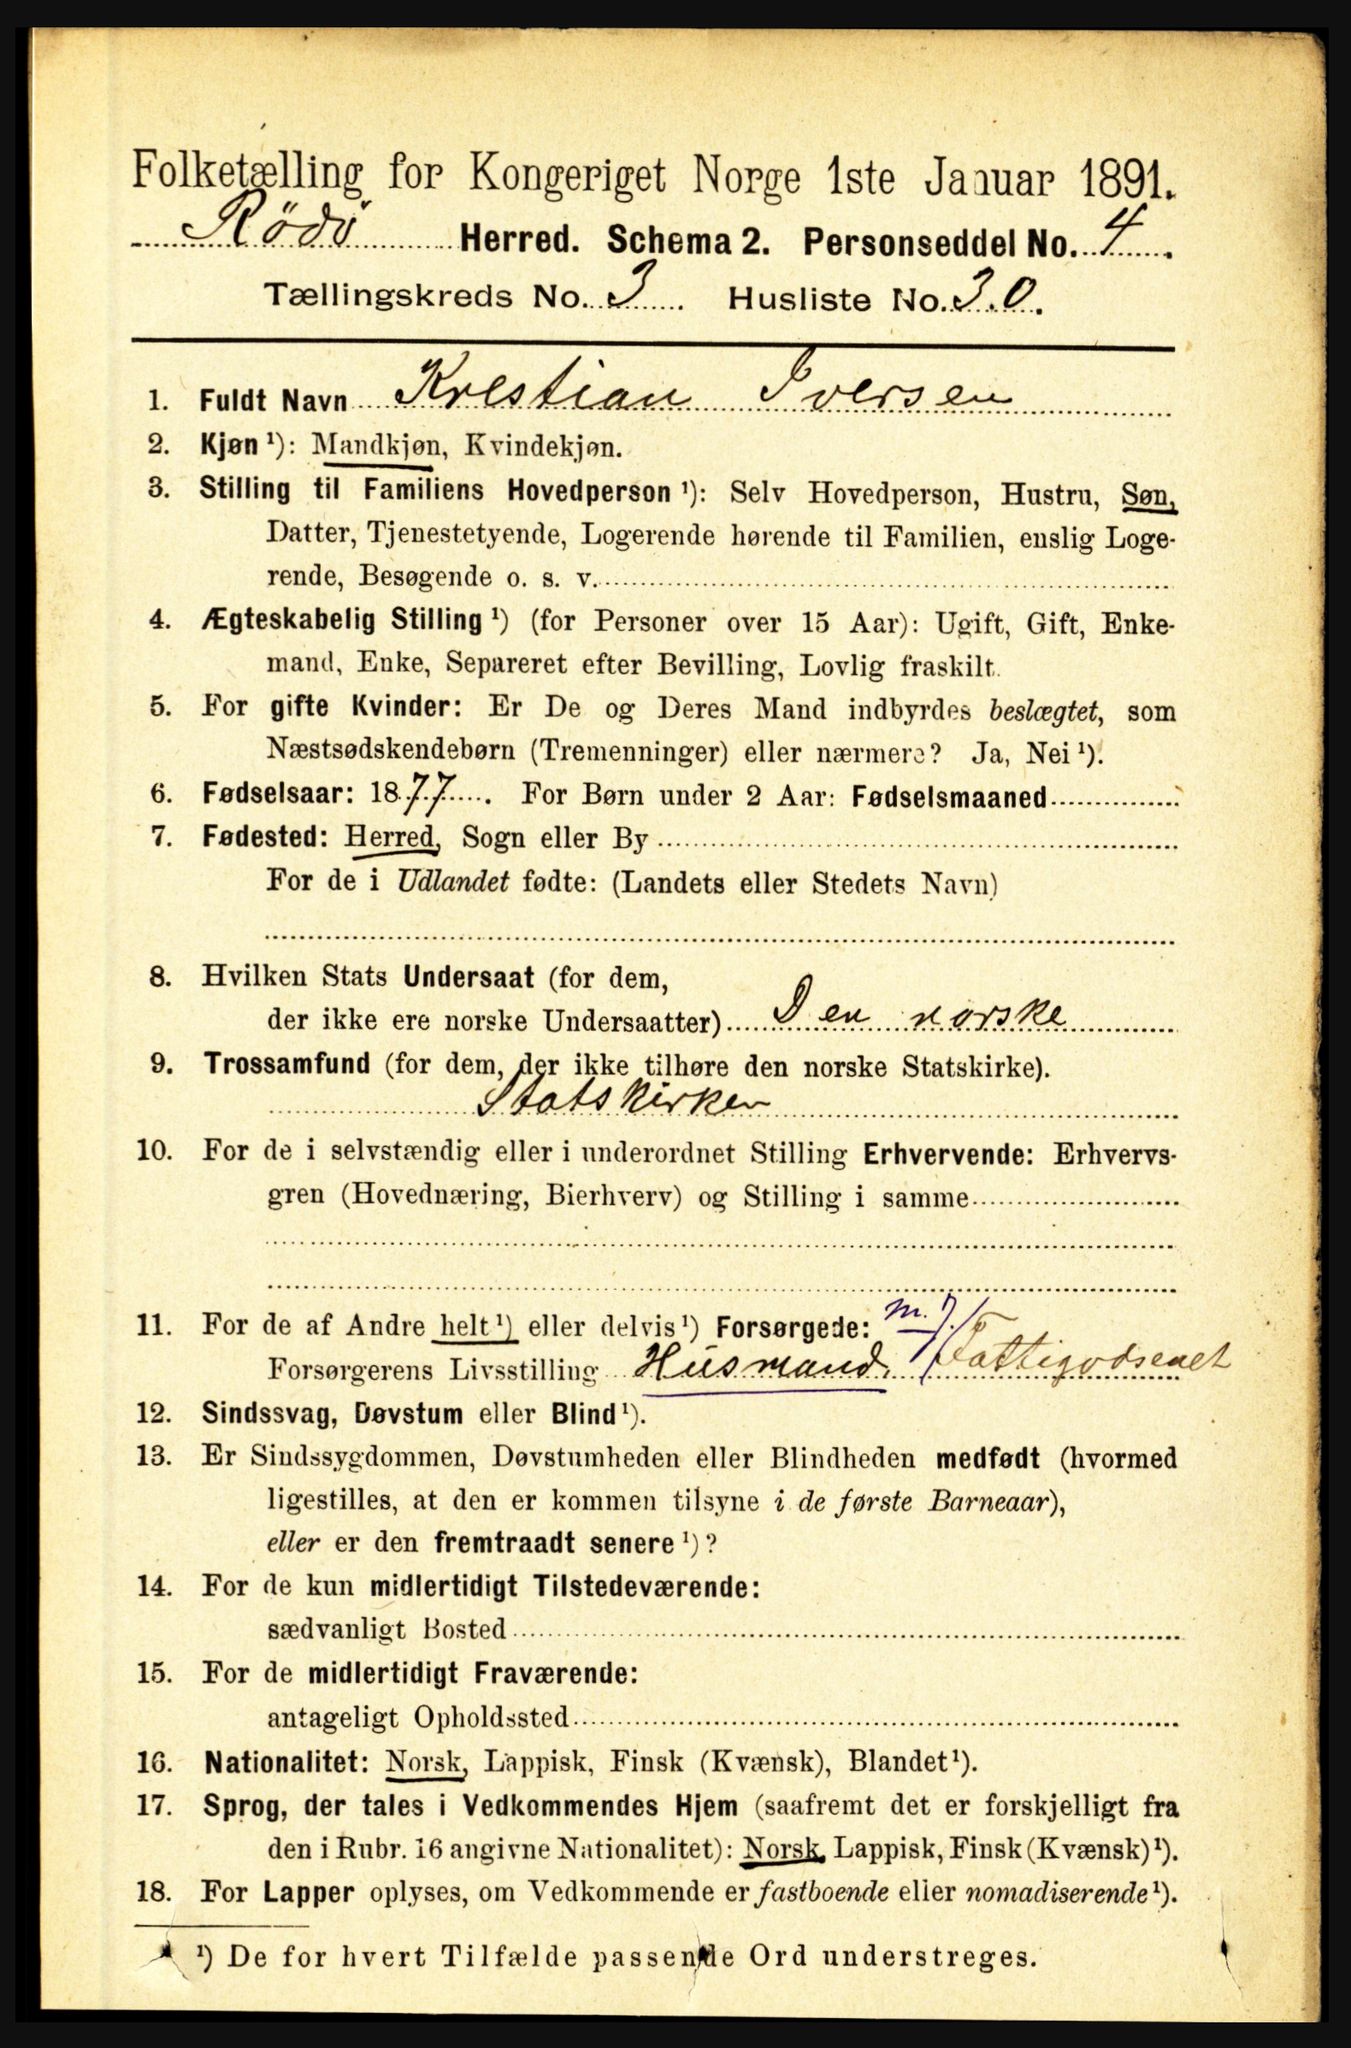 Folketælling for Kongeriget Norge 1ste Januar 1891.
Rödö Herred. Schema 2. Personseddel No. 4.
Tællingskreds No. 3. Husliste No. 30.
1. Fuldt Navn Krestian Iversen
2. Kjøn ¹): Mandkjøn, Kvindekjøn.
3. Stilling til Familiens Hovedperson ¹): Selv Hovedperson, Hustru, Søn,
Datter, Tjenestetyende, Logerende hørende til Familien, enslig Loge-
rende, Besøgende o. s. v.
4. Ægteskabelig Stilling ¹) (for Personer over 15 Aar): Ugift, Gift, Enke-
mand, Enke, Separeret efter Bevilling, Lovlig fraskilt.
5. For gifte Kvinder: Er De og Deres Mand indbyrdes beslægtet, som
Næstsødskendebørn (Tremenninger) eller nærmere? Ja, Nei ¹).
6. Fødselsaar: 1877. For Børn under 2 Aar: Fødselsmaaned
7. Fødested: Herred, Sogn eller By
For de i Udlandet fødte: (Landets eller Stedets Navn)
8. Hvilken Stats Undersaat (for dem,
der ikke ere norske Undersaatter) Den norske
9. Trossamfund (for dem, der ikke tilhøre den norske Statskirke).
Statskirken
10. For de i selvstændig eller i underordnet Stilling Erhvervende: Erhvervs-
gren (Hovednæring, Bierhverv) og Stilling i samme
11. For de af Andre helt ¹) eller delvis ¹) Forsørgede:
Forsørgerens Livsstilling Husmand.
12. Sindssvag, Døvstum eller Blind ¹).
13. Er Sindssygdommen, Døvstumheden eller Blindheden medfødt (hvormed
ligestilles, at den er kommen tilsyne i de første Barneaar),
eller er den fremtraadt senere ¹)?
14. For de kun midlertidigt Tilstedeværende:
sædvanligt Bosted
15. For de midlertidigt Fraværende:
antageligt Opholdssted
16. Nationalitet: Norsk, Lappisk, Finsk (Kvænsk), Blandet ¹).
17. Sprog, der tales i Vedkommendes Hjem (saafremt det er forskjelligt fra
den i Rubr. 16 angivne Nationalitet): Norsk, Lappisk, Finsk (Kvænsk) ¹).
18. For Lapper oplyses, om Vedkommende er fastboende eller nomadiserende ¹).
¹) De for hvert Tilfælde passende Ord understreges.